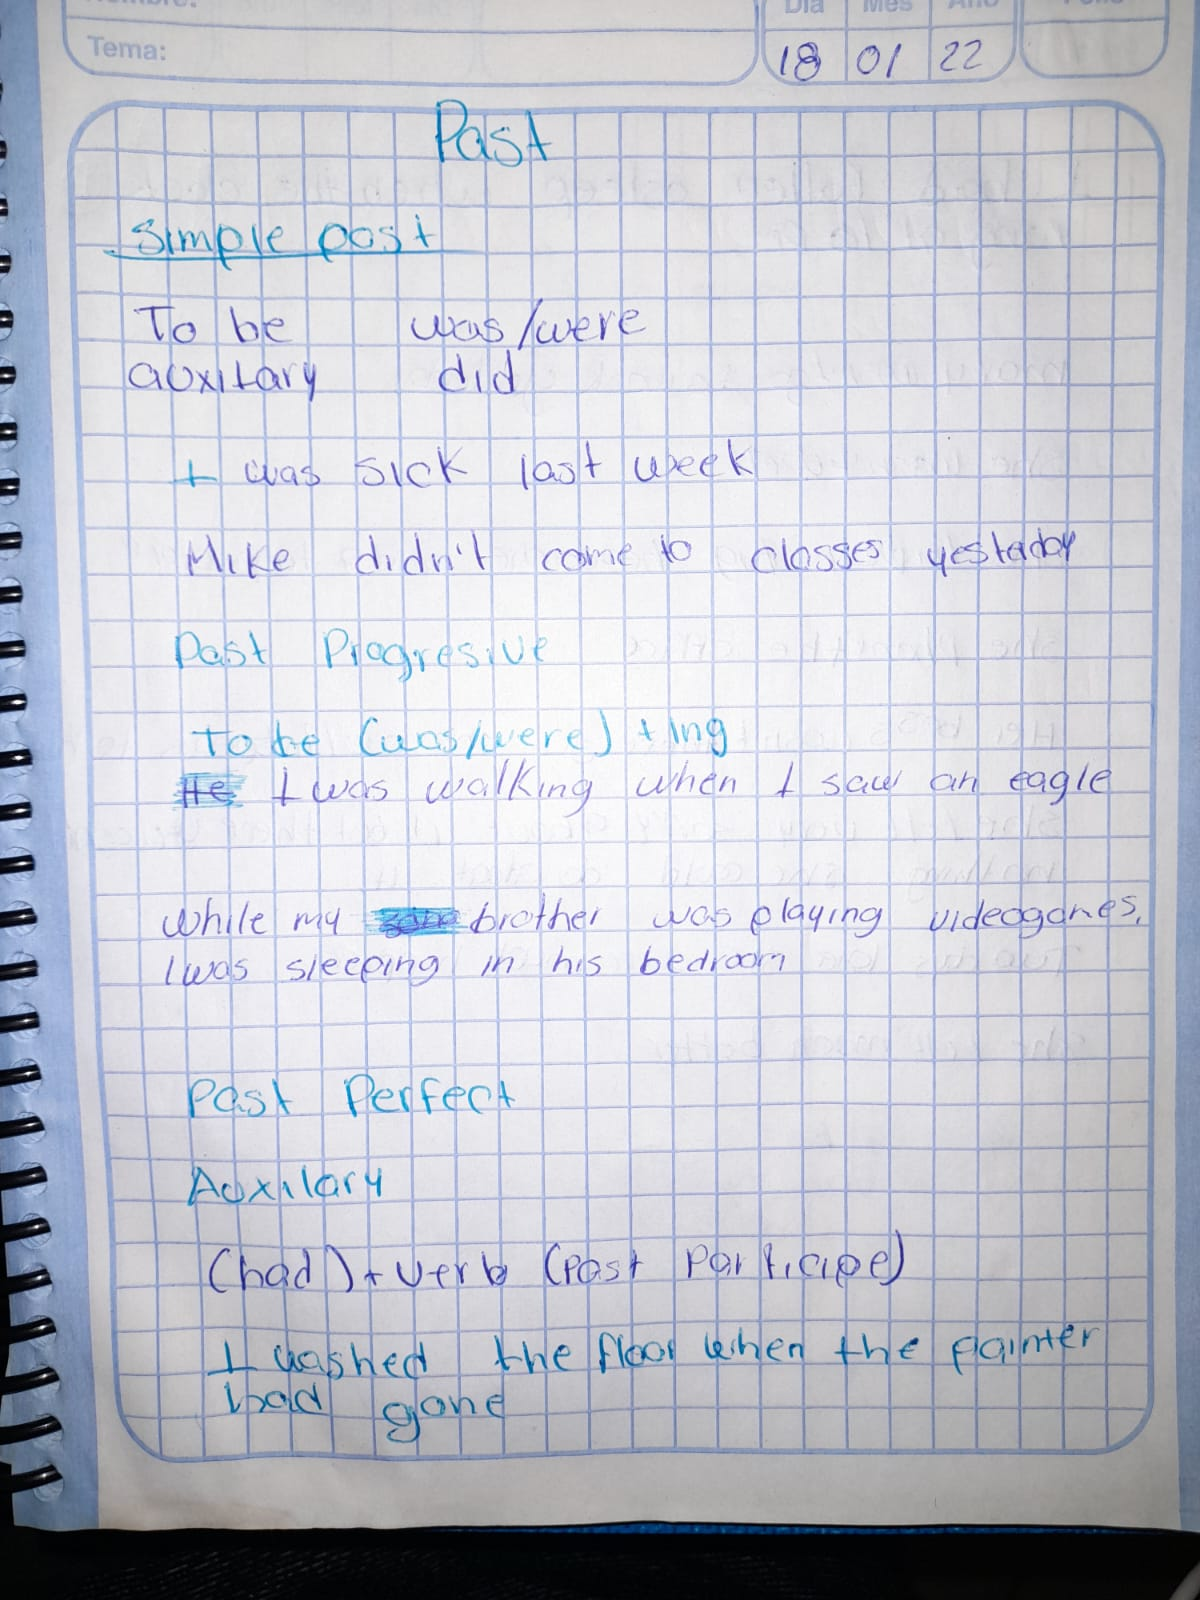 Tema:
Día Mes Año
18 01 22
Past
Simple past
To be was/were
auxiliary did
I was sick last week
Mike didn't come to classes yestaday
Past Progresive
To be (was/were) + ing
He I was walking when I saw an eagle
While my brother was playing videogames,
I was sleeping in his bedroom
Past Perfect
Auxilary
(had) + verb (past participe)
I washed the floor when the painter
had gone